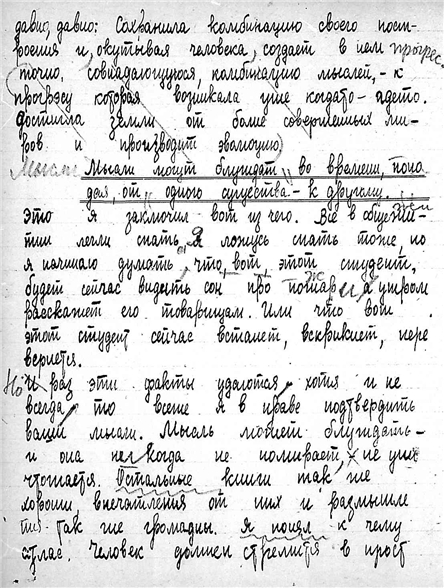 давно, давно: Сохранила комбинацию своего пост-
роения и, окутывая человека, создает в нем прогрес.
точно, совпадающуюся, комбинацию мыслей, - к
прогрэсу которая возникала уже когдато - гдето.
достигла земли от боле совершенных ми-
ров и производит эволюцию)
Мысли Мысли могут блуждат во времени, попа
дая, от одного существа - к другому.
Это я заключил вот из чего. Все в общежи-
тии легли спать, Я ложусь спать тоже, но
я начинаю думать, что, вот, этот студент,
будет сейчас видить сон про пожар и утром
раескажет его товарищам. Или что вот
этот студент сейчас встанет, вскрикнет, пере
вернется.
Но И раз эти факты удаются, хотя и не
всегда, то всеже я в праве подтвердить
ваши мысли. Мысль может блуждать -
и она никогда не помирает, не уни
чтожается. Остальные книги так же
хороши, впечатления от них и размышле
ния так же громадны. Я понял к чему
Человек должен стрелится в прост